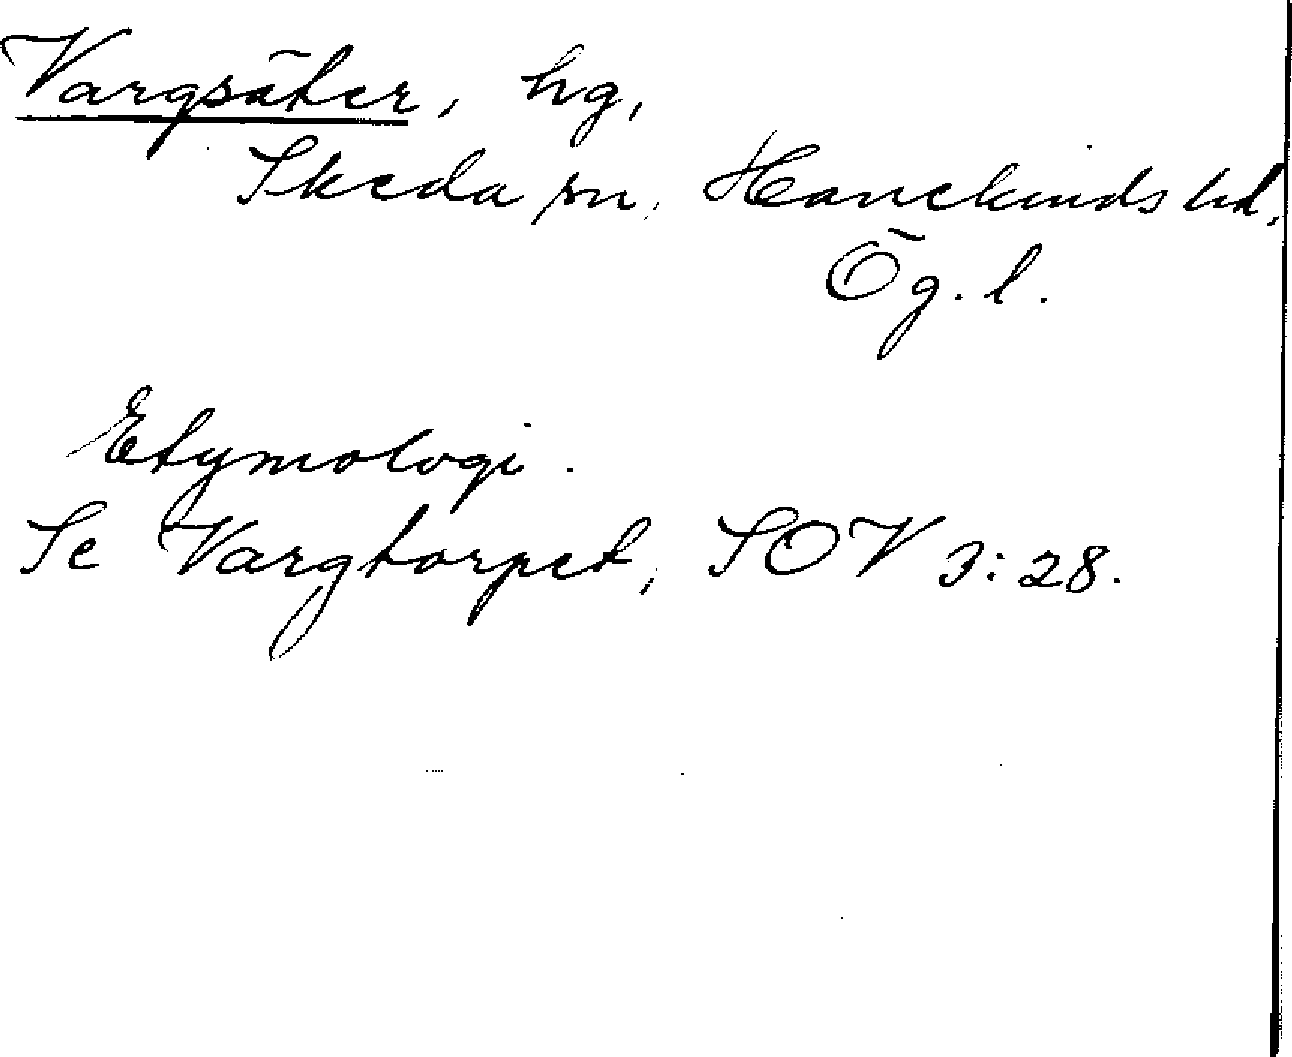 Vargsäter, hg,
Skeda sn, Hanekinds hd,
Ög. l.
Etymologi.
Se Vargtorpet, SOV 3:28.